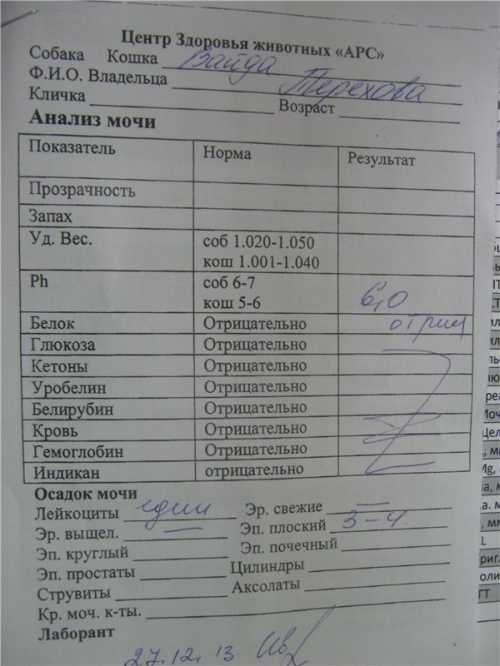 Центр Здоровья животных «АРС»
Собака Кошка Вайда
Ф.И.О. Владельца Терехова
Кличка Возраст
Анализ мочи
Показатель Норма Результат
Прозрачность
Запах
Уд. Вес. соб 1.020-1.050
кош 1.001-1.040
Ph соб 6-7
кош 5-6 6,0
Белок Отрицательно отриц
Глюкоза Отрицательно
Кетоны Отрицательно
Уробелин Отрицательно
Белирубин Отрицательно
Кровь Отрицательно
Гемоглобин Отрицательно
Индикан отрицательно
Осадок мочи
Лейкоциты един Эр. свежие —
Эр. выщел. — Эп. плоский 3-4
Эп. круглый Эп. почечный
Эп. простаты Цилиндры
Струвиты Аксолаты
Кр. моч. к-ты.
Лаборант
27.12.13